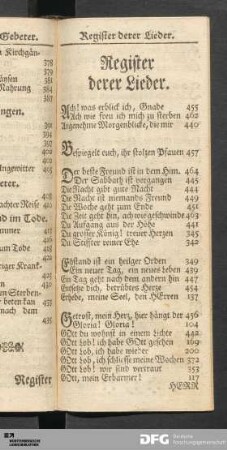 Geberer.
n Kirchgän-
378
379
383
Nahrung 384
387
ngen.
ngewitter
eter.
achter Reise
nd im Tode.
um Tode
riger Krank-
m Sterben-
beten kan
nach dem
Register
Register derer Lieder.
Register
derer Lieder.
Ach! was erblick ich, Gnade 455
Ach wie freu ich mich zu sterben 462
Angenehme Morgenblicke, die mir 440
Bespiegelt euch, ihr stolzen Pfauen 457
Der beste Freund ist in dem Him. 464
Der Sabbath ist vergangen 445
Die Nacht gibt gute Nacht 444
Die Nacht ist niemands Freund 449
Die Woche geht zum Ende 451
Die Zeit geht hin, ach wie geschwinde 463
Du Aufgang aus der Höhe 441
Du grosser König! treuer Herzen 345
Du Stiffter reiner Ehe 342
Ehstand ist ein heilger Orden 349
Ein neuer Tag, ein neues Leben 439
Ein Tag geht nach dem andern hin 447
Entsehe dich, betrübtes Herze 454
Erhebe, meine Seel, den HErren 137
Getrost, mein Herz, hier hängt der 456
Gloria! Gloria! 104
GOtt du wohnst in einem Lichte 422
GOtt Lob! ich habe GOtt gesehen 169
GOtt Lob, ich habe wieder 200
GOtt Lob, ich schliesse meine Wochen 372
GOtt Lob! wir sind vertraut 353
GOtt, mein Erbarmer! 117
HERR
DFG Deutsche
Forschungsgemeinschaft